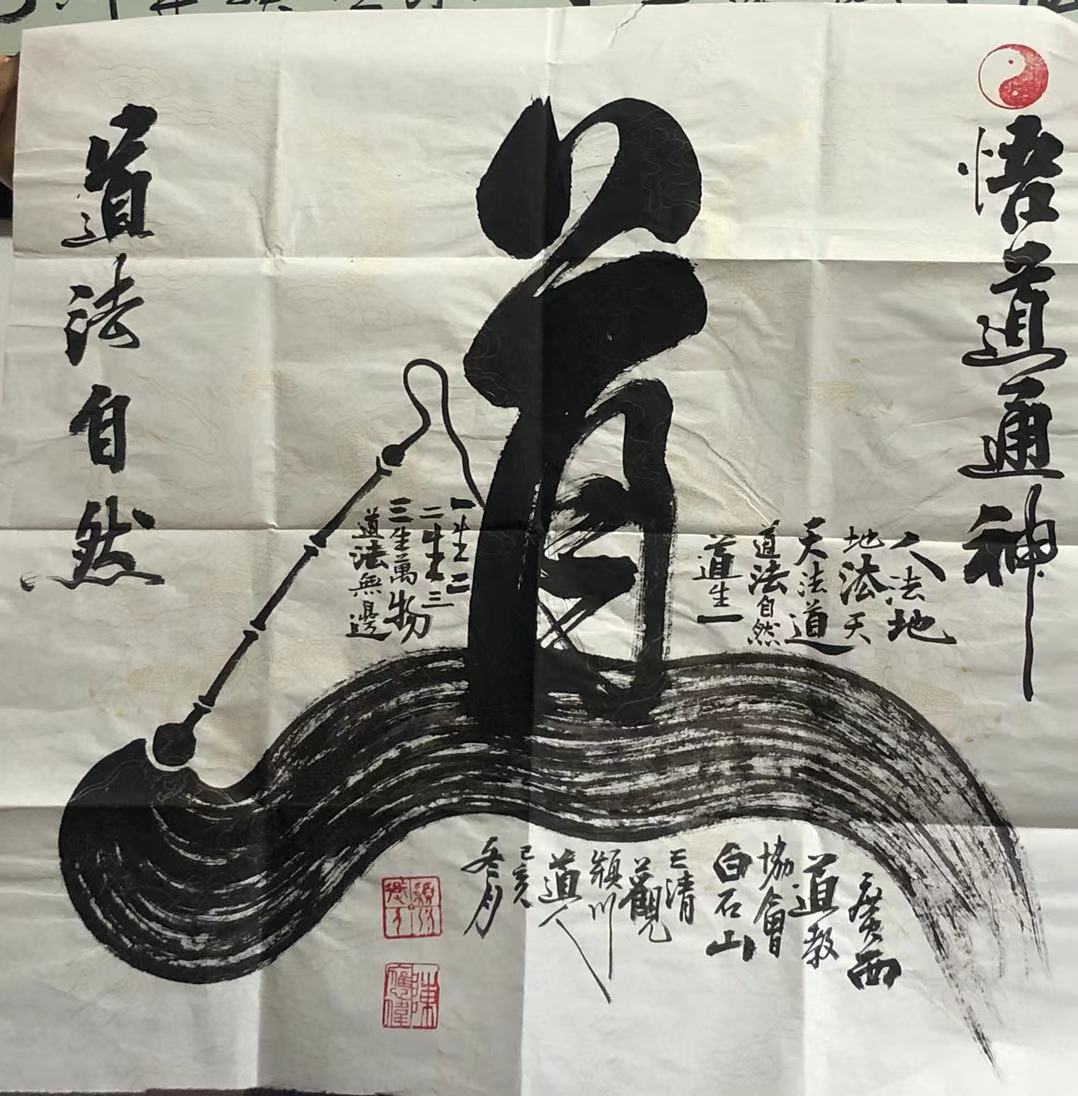 悟道通神
道
人法地
地法天
天法道
道法自然
道生一
一生二
二生三
三生萬物
道法無邊
道法自然
廣西
道教
協會
白石山
三清
觀
頴川
道人
己亥
冬月
陳應偉